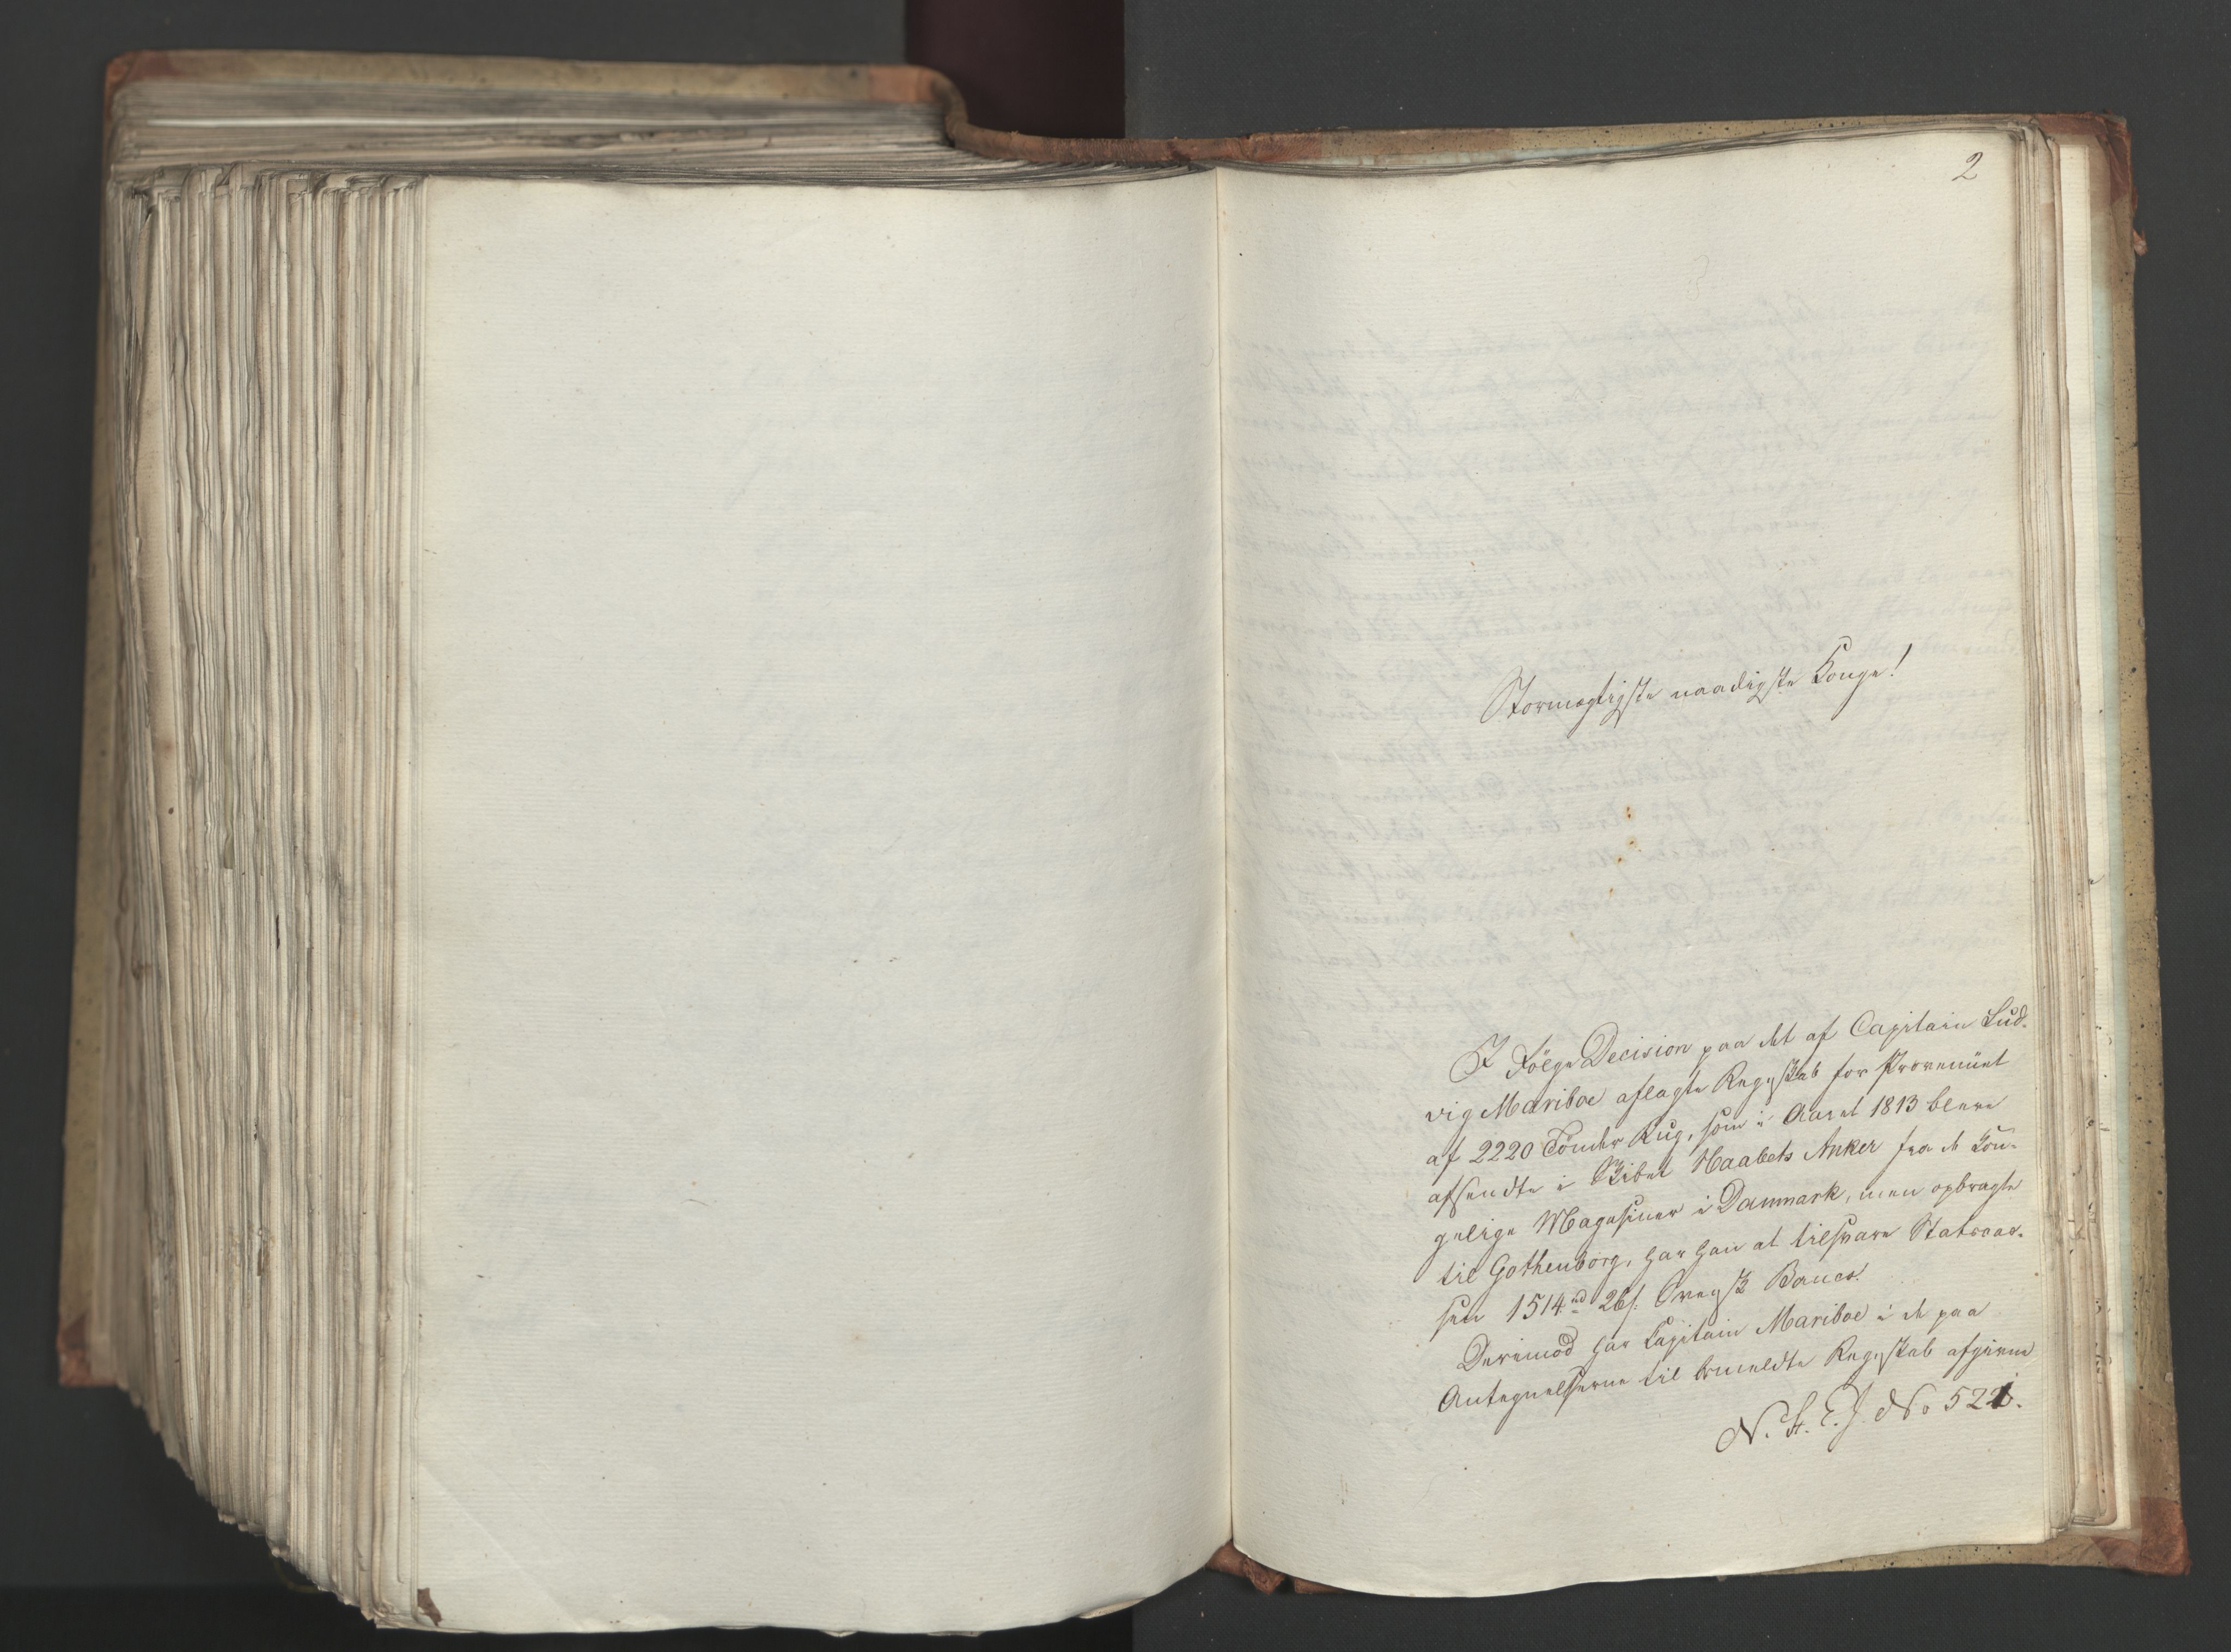 2
Stormægtigste naadigste Konge!
I Følge Decision paa det af Capitain Lud-
vig Mariboe aflagte Regnskab for Provenüet
af 2220 Tönder Rug, som i Aaret 1813 bleve
afsendte i Skibet Haabets Anker fra de Kon-
gelige Magasiner i Danmark, men opbragte
til Gothenborg, har han at tilsvare Statscas-
sen 1514 rd 26 s. Svensk Banco.
Derimod har Capitain Mariboe i de paa
Antegnelserne til bemeldte Regnskab afgivne
N. A. E. J. No 521.